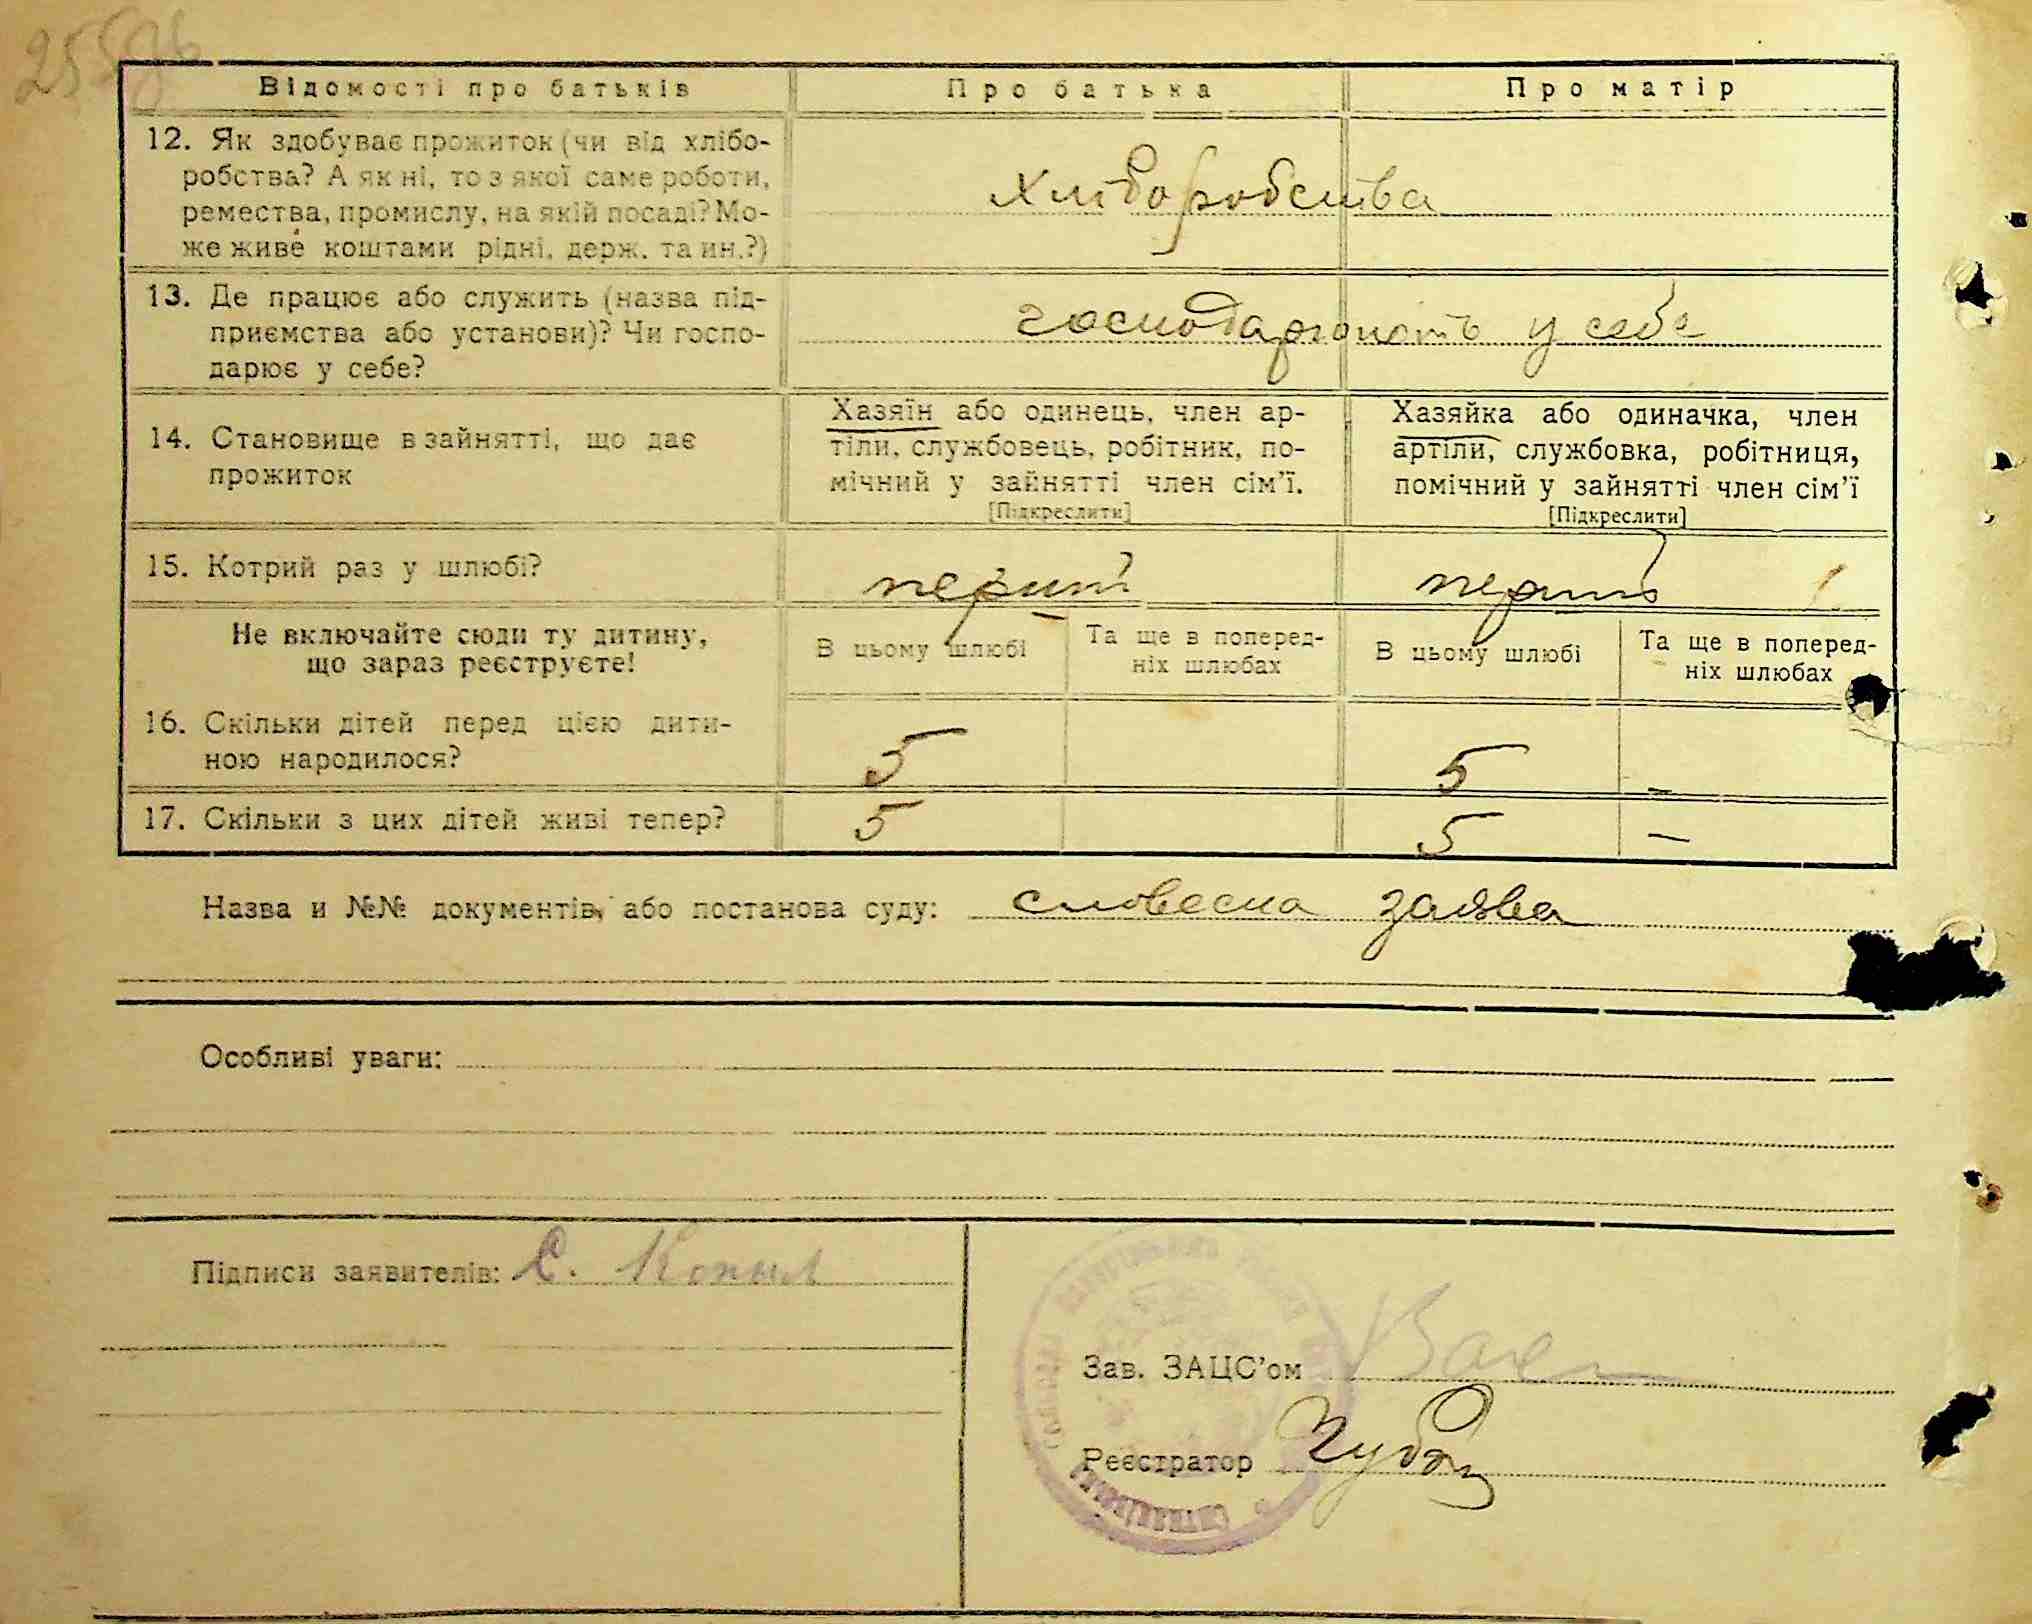 Відомості про батьків Про батька Про матір
12. Як здобуває прожиток (чи від хлібо-
робства? А як ні, то з якої саме роботи,
ремества, промислу, на якій посаді? Мо-
же живе коштами рідні, держ. та ин.?)
хліборобства
13. Де працює або служить (назва під-
приємства або установи)? Чи госпо-
дарює у себе?
господарюють у себе
14. Становище в зайнятті, що дає
прожиток
Хазяїн або одинець, член ар-
тіли, службовець, робітник, по-
мічний у зайнятті член сім'ї.
[Підкреслити]
Хазяйка або одиначка, член
артіли, службовка, робітниця,
помічний у зайнятті член сім'ї
[Підкреслити]
15. Котрий раз у шлюбі?
перший перший
Не включайте сюди ту дитину,
що зараз реєструєте!
В цьому шлюбі
Та ще в поперед-
ніх шлюбах
В цьому шлюбі
Та ще в поперед-
ніх шлюбах
16. Скільки дітей перед цією дити-
ною народилося?
5 5 –
17. Скільки з цих дітей живі тепер? 5 5 –
Назва и №№ документів, або постанова суду: словесна заява
Особливі уваги:
Підписи заявителів: С. Копыл
Зав. ЗАЦС'ом
Реєстратор